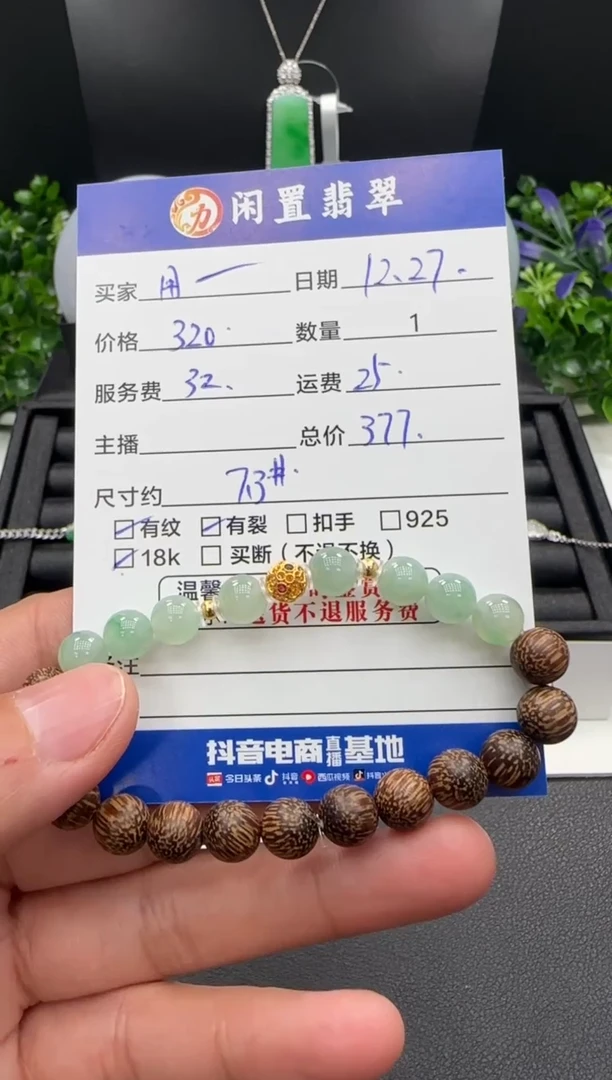 力 闲置翡翠
买家 用一 日期 12.27.
价格 320. 数量 1
服务费 32. 运费 25.
主播 总价 377.
尺寸约 7.3#.
☑有纹 ☑有裂 ☐扣手 ☐925
☑18k ☐买断（不退不换）
温馨
货不退服务费
注
抖音电商直播基地
头条 今日头条 抖音 西瓜视频